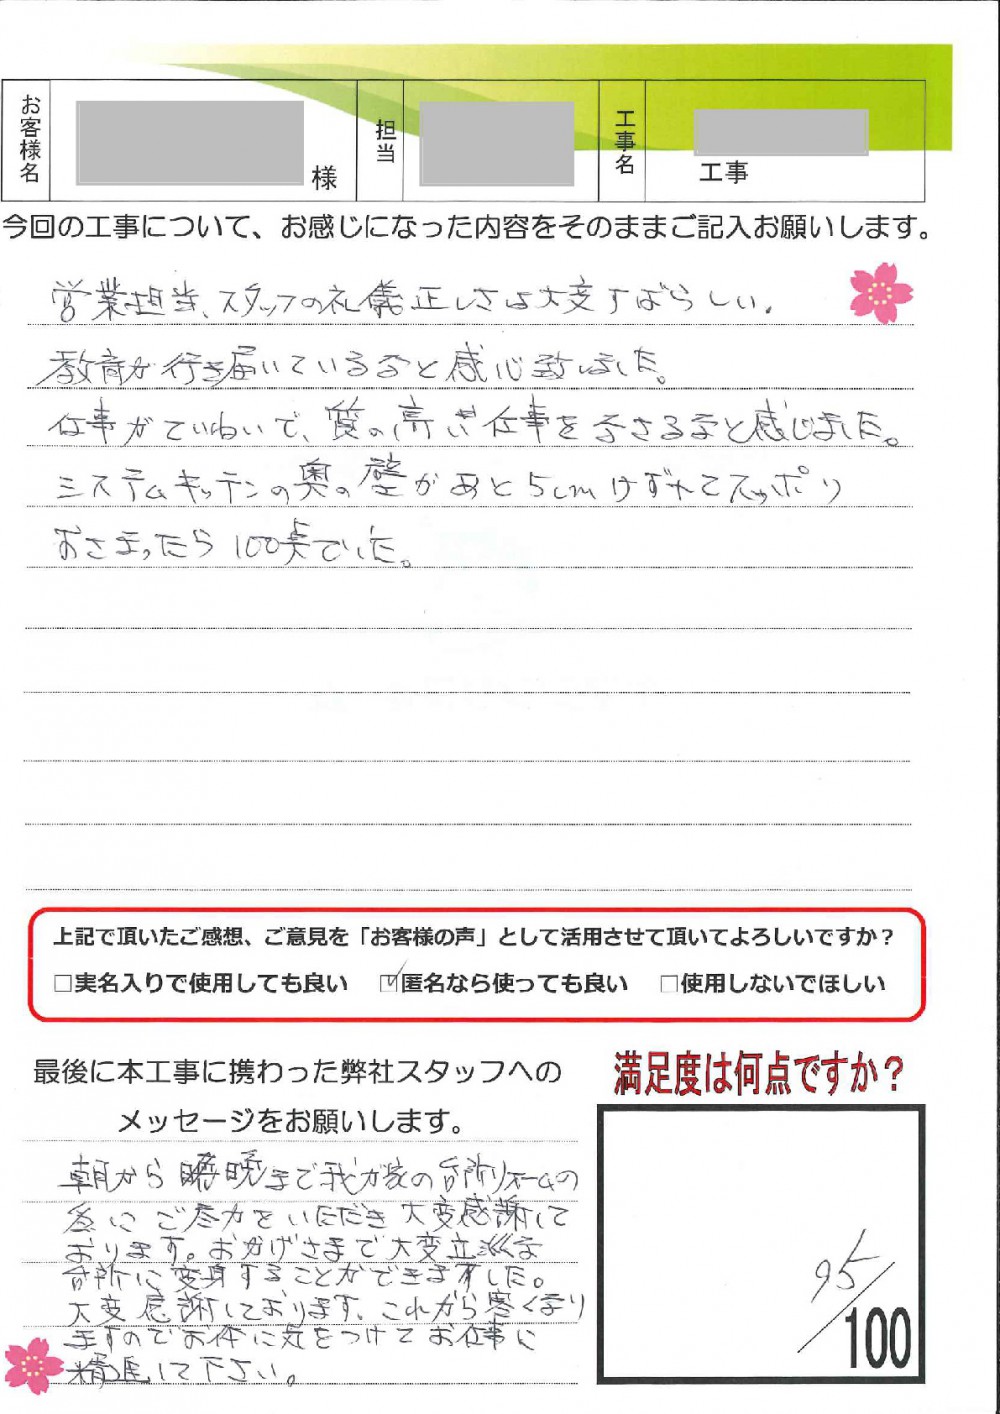 お客様名
様
担当
工事名
工事
今回の工事について、お感じになった内容をそのままご記入お願いします。
営業担当、スタッフの礼儀正しさは大変すばらしい。
教育が行き届いているなと感心致しました。
仕事がていねいで、質の高い仕事をなさるなと感じました。
システムキッチンの奥の壁があと5cmけずれてスッポリ
おさまったら100点でした。
上記で頂いたご感想、ご意見を「お客様の声」として活用させて頂いてよろしいですか？
□実名入りで使用しても良い ☑匿名なら使っても良い □使用しないでほしい
最後に本工事に携わった弊社スタッフへの
メッセージをお願いします。
満足度は何点ですか？
朝から晩まで我が家の台所リフォームの
為にご尽力をいただき大変感謝して
おります。おかげさまで大変立派な
台所に変身することができました。
大変感謝しております。これから寒くなり
ますのでお体に気をつけてお仕事に
精進して下さい。
95/100